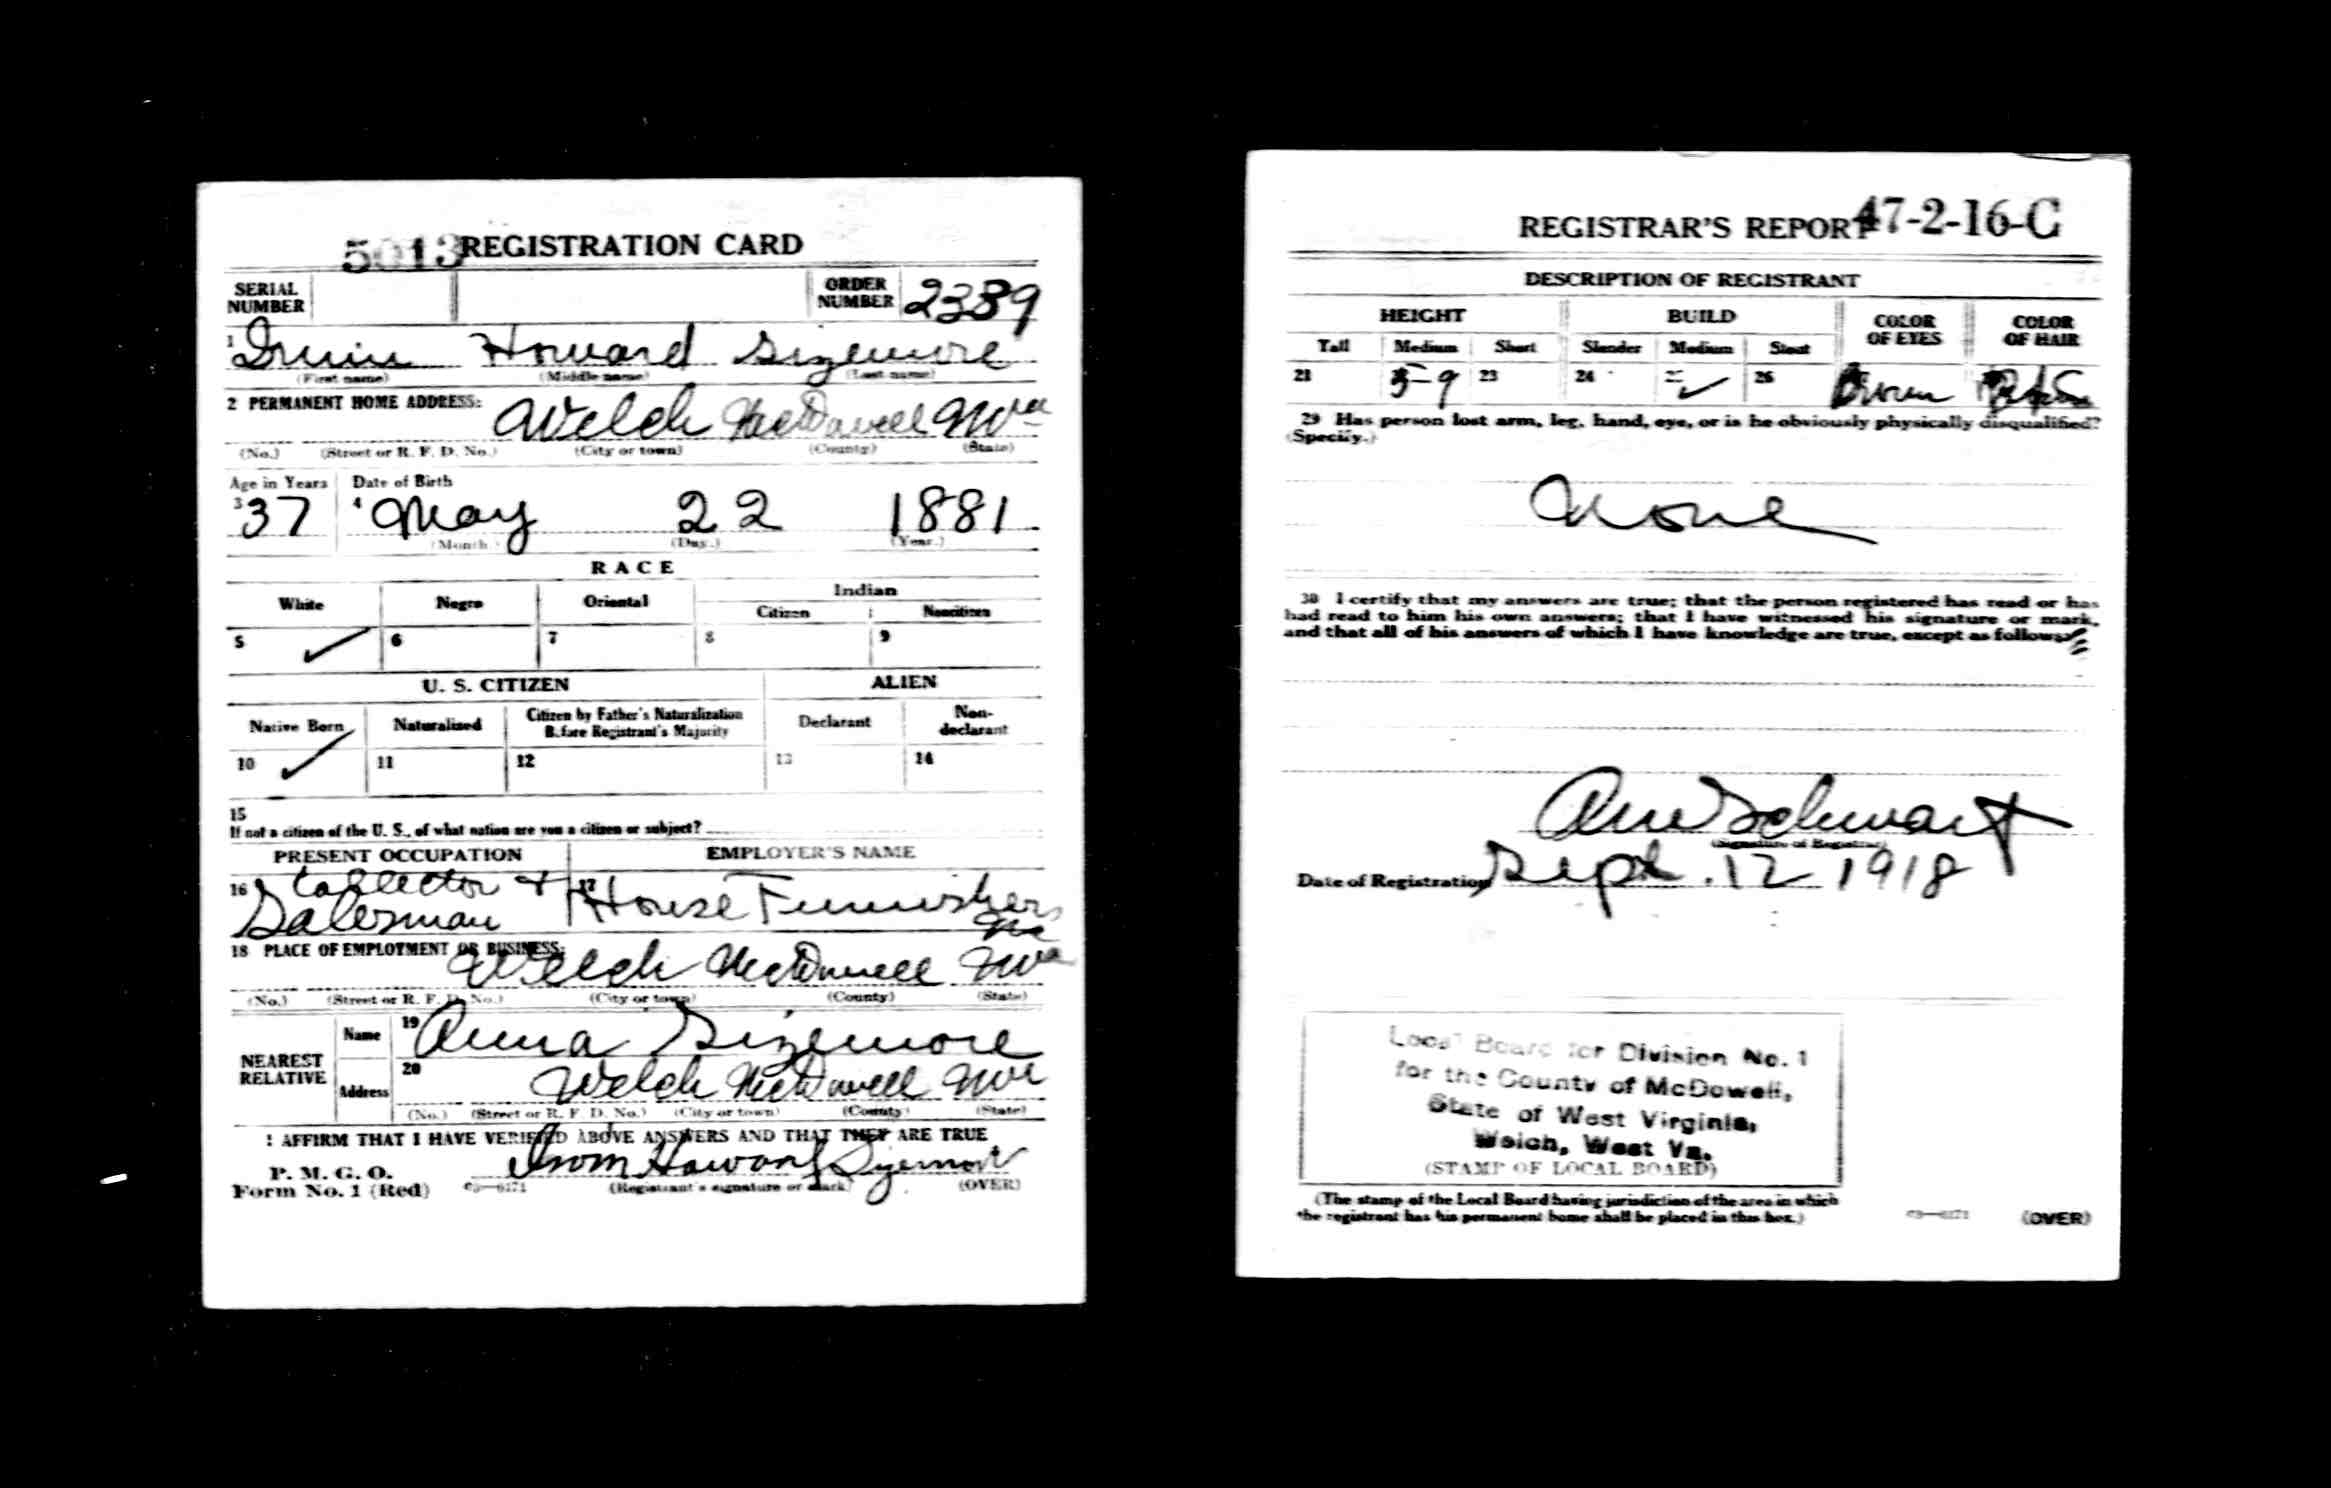 5013 REGISTRATION CARD
SERIAL NUMBER
ORDER NUMBER 2389
1 Irwin Howard Sizemore
(First name) (Middle name) (Last name)
2 PERMANENT HOME ADDRESS:
Welch McDowell Wva
(No.) (Street or R. F. D. No.) (City or town) (County) (State)
Age in Years Date of Birth
3 37 4 May 22 1881
(Month.) (Day.) (Year.)
RACE
White Negro Oriental Indian
Citizen Noncitizen
5 ✓ 6 7 8 9
U. S. CITIZEN ALIEN
Native Born Naturalized Citizen by Father's Naturalization Before Registrant's Majority Declarant Non-declarant
10 ✓ 11 12 13 14
15
If not a citizen of the U. S., of what nation are you a citizen or subject?
PRESENT OCCUPATION EMPLOYER'S NAME
16 Collector + Salesman 17 House Furnishers
18 PLACE OF EMPLOYMENT OR BUSINESS:
Welch McDowell Wva
(No.) (Street or R. F. D. No.) (City or town) (County) (State)
NEAREST RELATIVE
Name 19 Anna Sizemore
Address 20 Welch McDowell Wva
(No.) (Street or R. F. D. No.) (City or town) (County) (State)
I AFFIRM THAT I HAVE VERIFIED ABOVE ANSWERS AND THAT THEY ARE TRUE
P. M. G. O.
Form No. 1 (Red) 03—6171 (Registrant's signature or mark) (OVER)
Howard Sizemore
REGISTRAR'S REPORT 47-2-16-C
DESCRIPTION OF REGISTRANT
HEIGHT BUILD COLOR OF EYES COLOR OF HAIR
Tall Medium Short Slender Medium Stout
21 5-9 23 24 25 ✓ 26 Brown
29 Has person lost arm, leg, hand, eye, or is he obviously physically disqualified?
(Specify.)
None
30 I certify that my answers are true; that the person registered has read or has
had read to him his own answers; that I have witnessed his signature or mark,
and that all of his answers of which I have knowledge are true, except as follows:
Schwart
(Signature of Registrar)
Date of Registration Sept. 12 1918
Local Board for Division No. 1
for the County of McDowell,
State of West Virginia,
Welch, West Va.
(STAMP OF LOCAL BOARD)
(The stamp of the Local Board having jurisdiction of the area in which
the registrant has his permanent home shall be placed in this box.)
03—6171 (OVER)